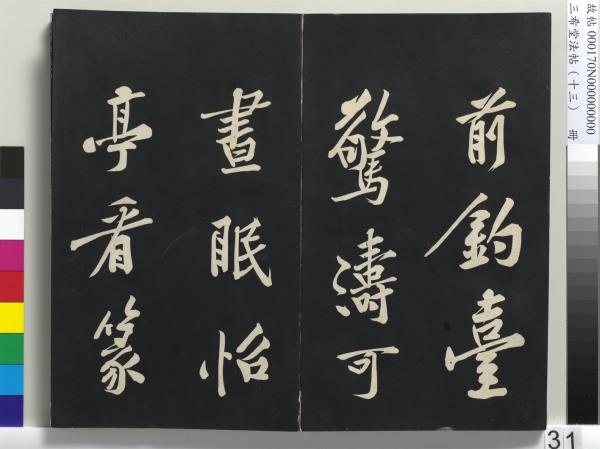 前釣臺
驚濤可
晝眠怡
亭看篆
故帖000170N000000000
三希堂法帖（十三） 冊
31